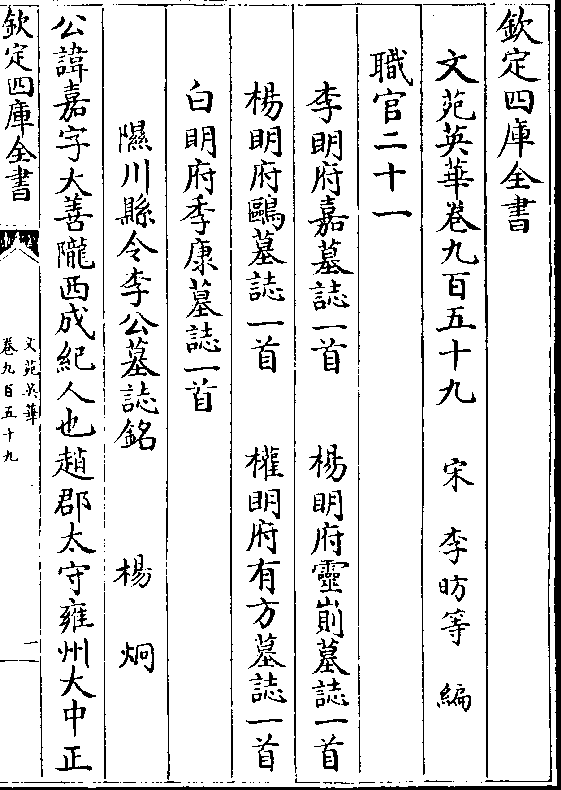 欽定四庫全書
文苑英華卷九百五十九 宋 李昉等 編
職官二十一
李明府嘉墓誌一首 楊明府靈崱墓誌一首
楊明府鷗墓誌一首 權明府有方墓誌一首
白明府季康墓誌一首
隰川縣令李公墓誌銘 楊 炯
公諱嘉字大善隴西成紀人也趙郡太守雍州大中正
欽定四庫全書
文苑英華
卷九百五十九
一